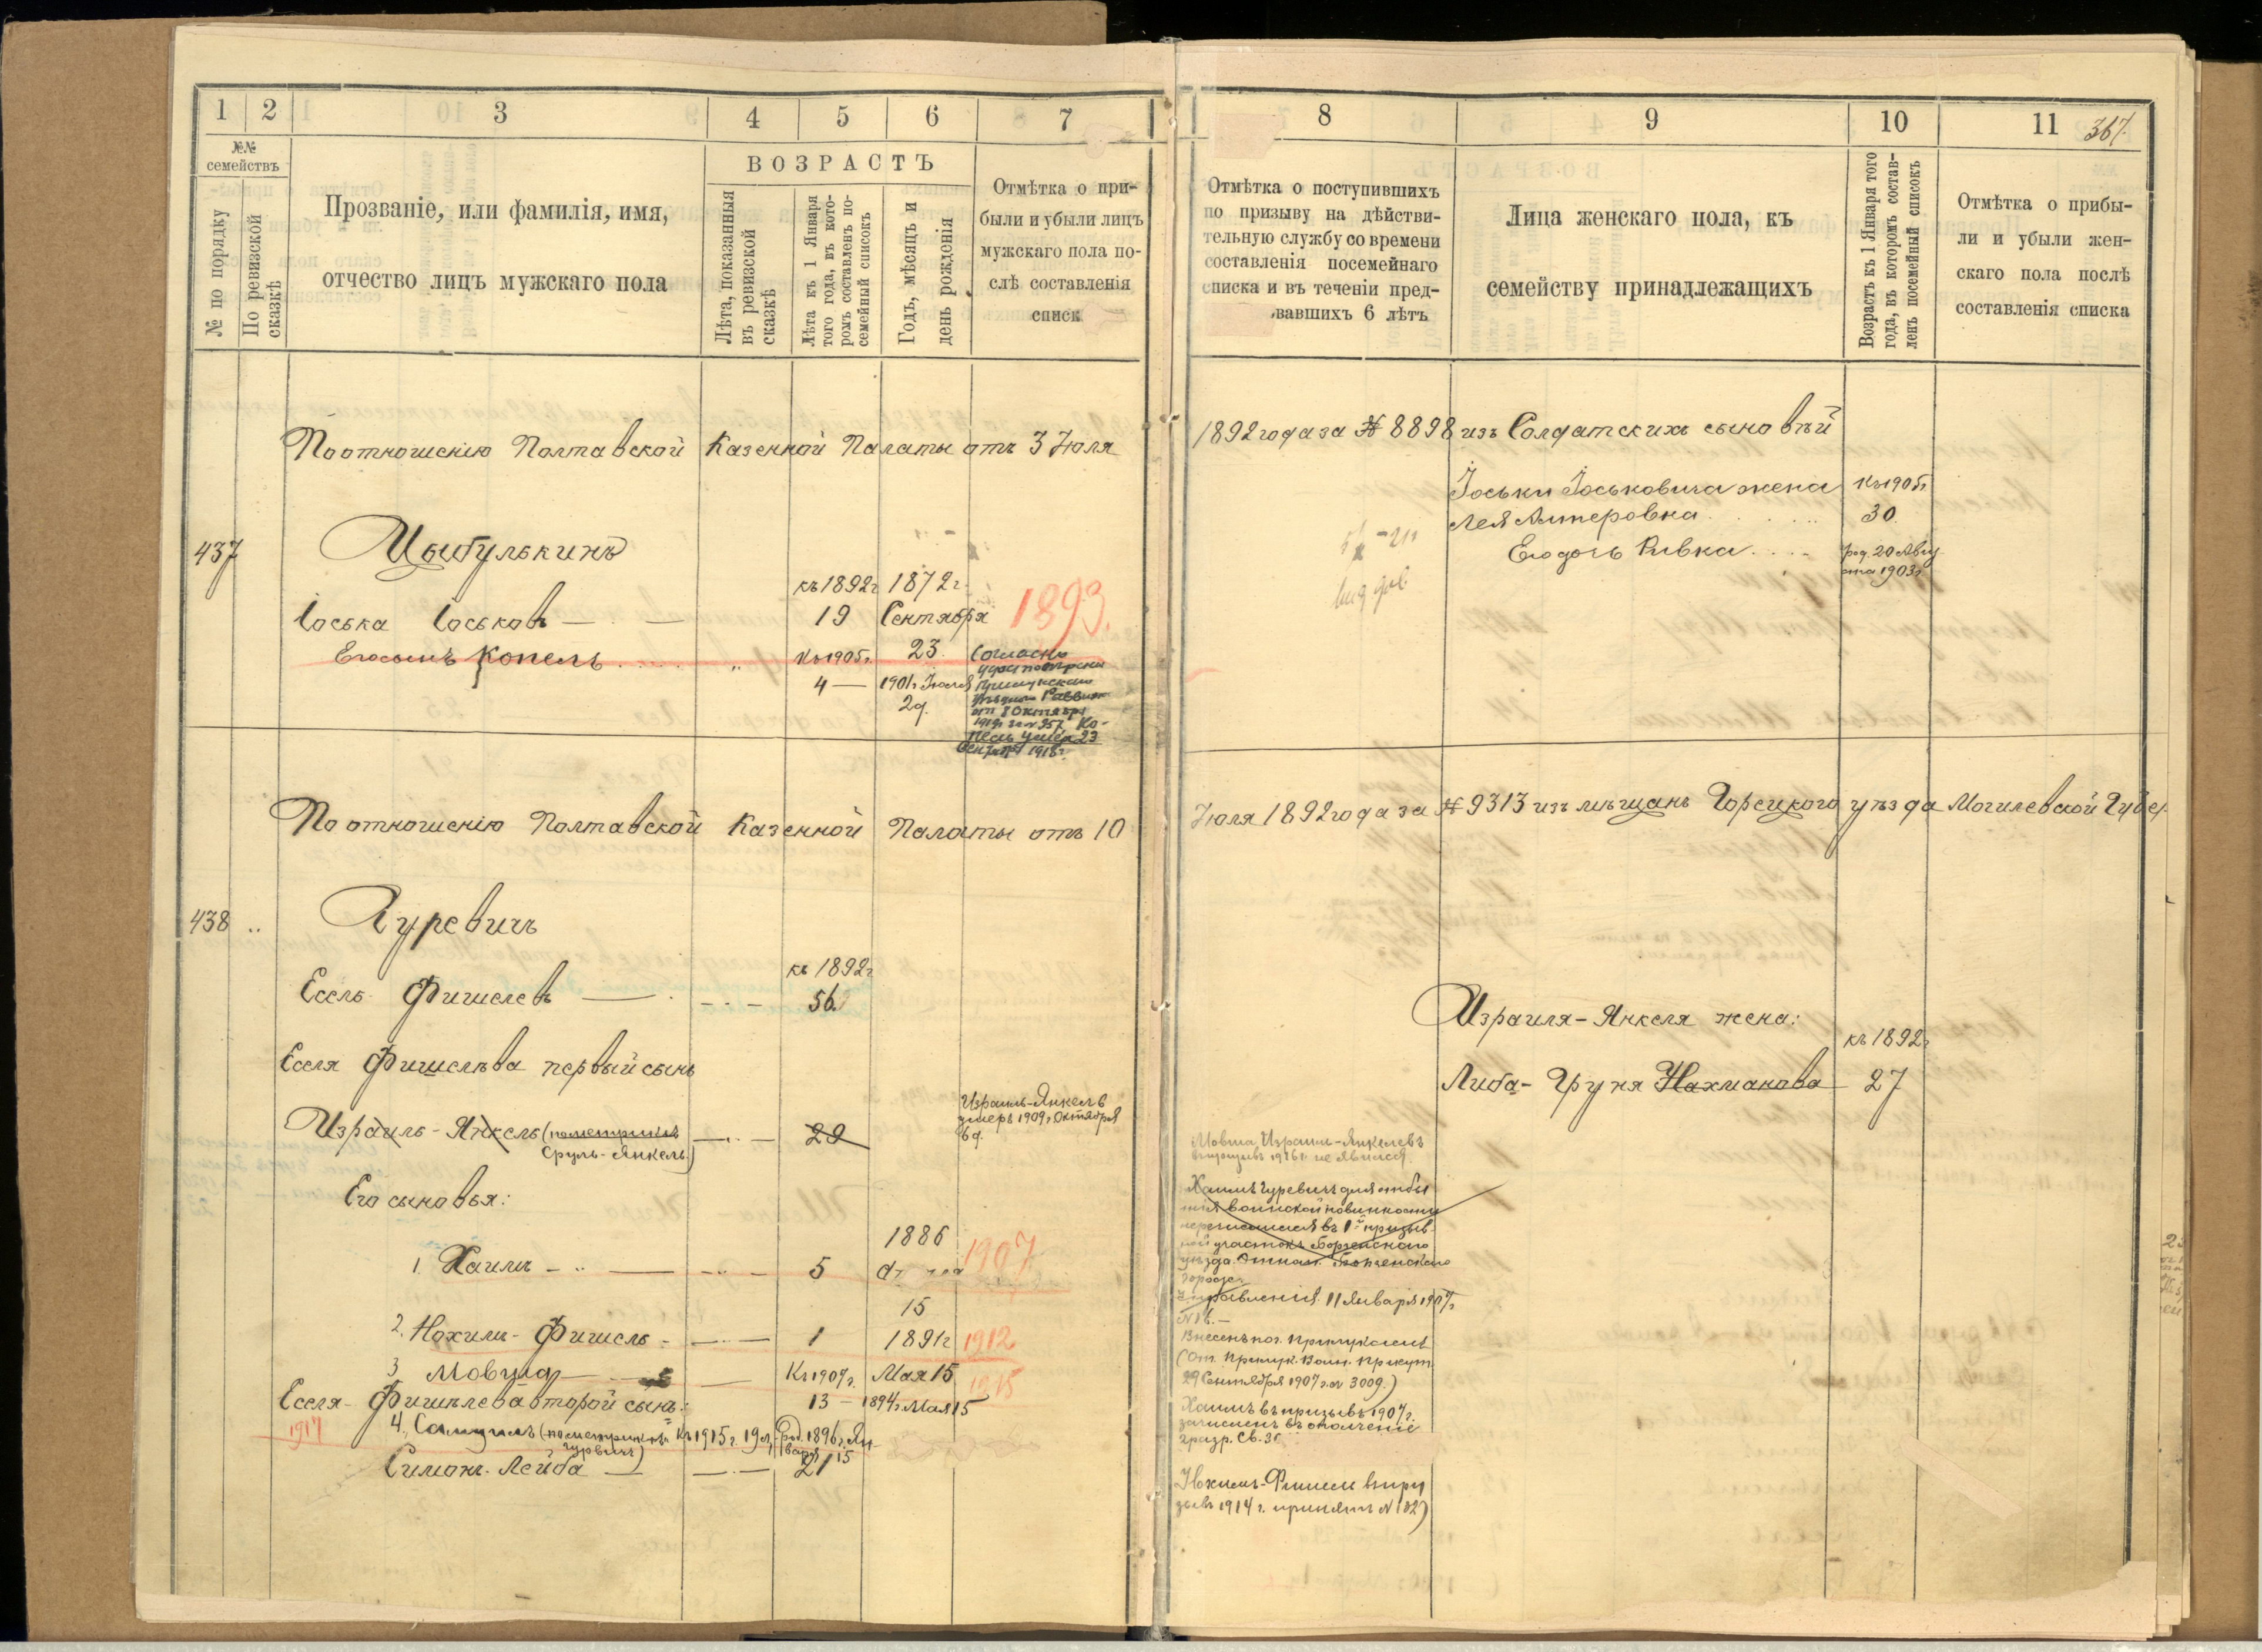 1 2 3 4 5 6 7
№№ семействъ
№ по порядку
По ревизской сказкѣ
Прозваніе, или фамилія, имя,
отчество лицъ мужскаго пола
ВОЗРАСТЪ
Лѣта, показанныя
въ ревизской
сказкѣ
Лѣта къ 1 Января
того года, въ кото-
ромъ составленъ по-
семейный списокъ
Годъ, мѣсяцъ и
день рожденія
Отмѣтка о при-
были и убыли лицъ
мужскаго пола по-
слѣ составленія
списк
По отношенію Полтавской Казенной Палаты отъ 3 Іюля
437 Цыбулькинъ
къ 1892г 1872г.
Іоська Іоськовъ 19 Сентября 1893.
23.
Его сынъ Копель къ 1905г.
4 — 1901г. Іюля
29.
Согласно
удостовѣренія
Прилукскаго
отъ 8 Октября
1919г. за № 357 Ко-
пель умеръ 23
Сентября 1918г.
По отношенію Полтавской Казенной Палаты отъ 10
438 Гуревичъ
къ 1892г
Есель Фишелевъ 56
Еселя Фишелева первый сынъ
Израиль-Янкель (по метрикѣ 29
Сруль-Янкель)
Израиль-Янкель
умеръ 1909г Октября
6 д.
Его сыновья:
1886
1. Хаимъ 5 1907
15
2. Нохимъ-Фишель 1 1891г 1912
3 Мовша къ 1907г. Мая 15 1915
13 — 1894г. Мая 15
Еселя-Фишелева второй сынъ:
1917 4. Самуилъ (по метрикѣ къ 1915г. 19 л. Род. 1896г. Ян-
Гуревичъ) варя 15
Симонъ-Лейба 21
8 9 10 11
367.
Отмѣтка о поступившихъ
по призыву на дѣйстви-
тельную службу со времени
составленія посемейнаго
списка и въ теченіи пред-
вавшихъ 6 лѣтъ
Лица женскаго пола, къ
семейству принадлежащихъ
Возрастъ къ 1 Января того
года, въ которомъ состав-
ленъ посемейный списокъ
Отмѣтка о прибы-
ли и убыли жен-
скаго пола послѣ
составленія списка
1892 года за № 8898 изъ Солдатскихъ сыновѣй
Іоськи Іоськовича жена къ 1905г
Лея Алтеровна 30.
Его дочь Ривка род. 20 Авгу
ста 1903г
Іюля 1892 года за № 9313 изъ мѣщанъ Горецкого уѣзда Могилевской Губер.
Израиля-Янкеля жена:
къ 1892г
Либа-Груня Нахманова 27
Мовша Израиль-Янкелевъ
въ призывъ 1916г. не явился
Хаимъ Гуревичъ для отбы
тія воинской повинности
перечислился въ 1й призыв-
ной участокъ Борзенского
уѣзда. Отнош. Борзенского
Городск.
Управленія 11 Января 1907г.
№ 16.—
Внесенъ по г. Прилукамъ
(От. Прилук. Воин. Присут.
29 Сентября 1907 г. № 3009.)
Хаимъ въ призывъ 1907г.
зачисленъ въ ополченіе
Нохимъ-Фишель въ при
зывъ 1914 г. принятъ № 182)